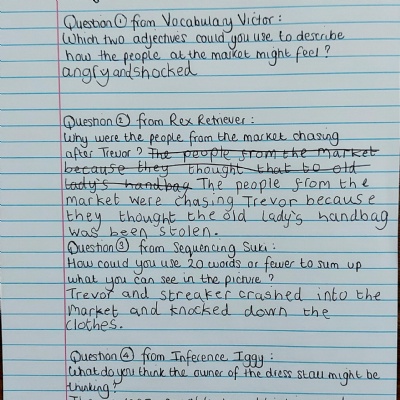 Question ① from Vocabulary Victor:
Which two adjectives could you use to describe
how the people at the market might feel?
angry and shocked
Question ② from Rex Retriever:
Why were the people from the market chasing
after Trevor? The people from the market
because they thought that to old
lady's handbag The people from the
market were chasing Trevor because
they thought the old lady's handbag
was been stolen.
Question ③ from Sequencing Suki:
How could you use 20 words or fewer to sum up
what you can see in the picture?
Trevor and streaker crashed into the
market and knocked down the
clothes.
Question ④ from Inference Iggy:
What do you think the owner of the dress stall might be
thinking?